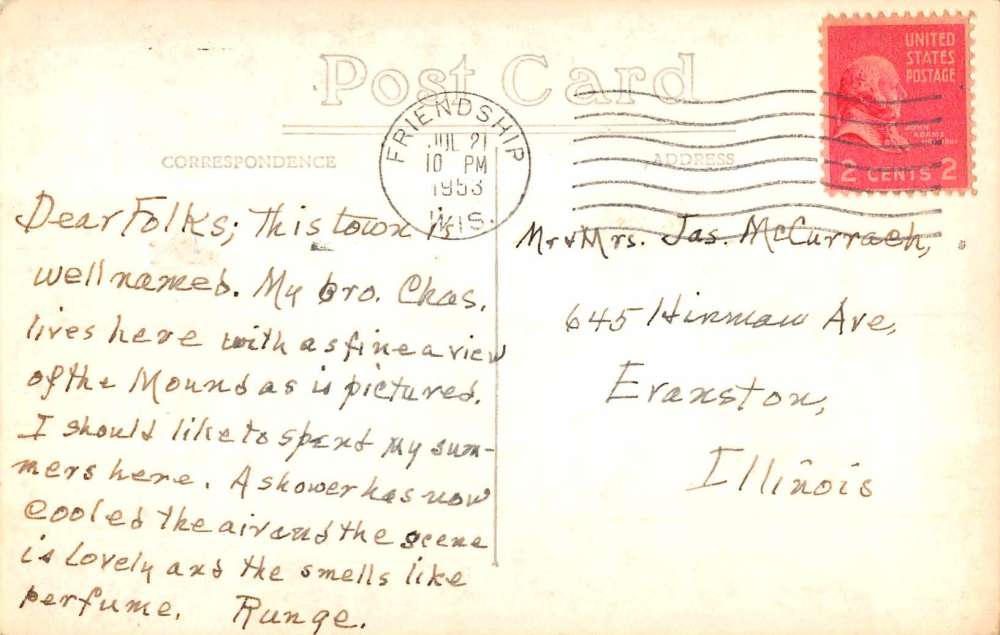 Post Card
UNITED
STATES
POSTAGE
JOHN
ADAMS
2 CENTS 2
FRIENDSHIP
JUL 21
10 PM
1953
WIS.
CORRESPONDENCE
ADDRESS
Dear Folks; This town is
well named. My bro. Chas.
lives here with as fine a view
of the Mound as is pictured.
I should like to spend my sum-
mers here. A shower has now
cooled the air and the scene
is lovely and the smells like
perfume. Runge.
Mr + Mrs. Jas. McCurrach,
645 Hinman Ave,
Evanston,
Illinois